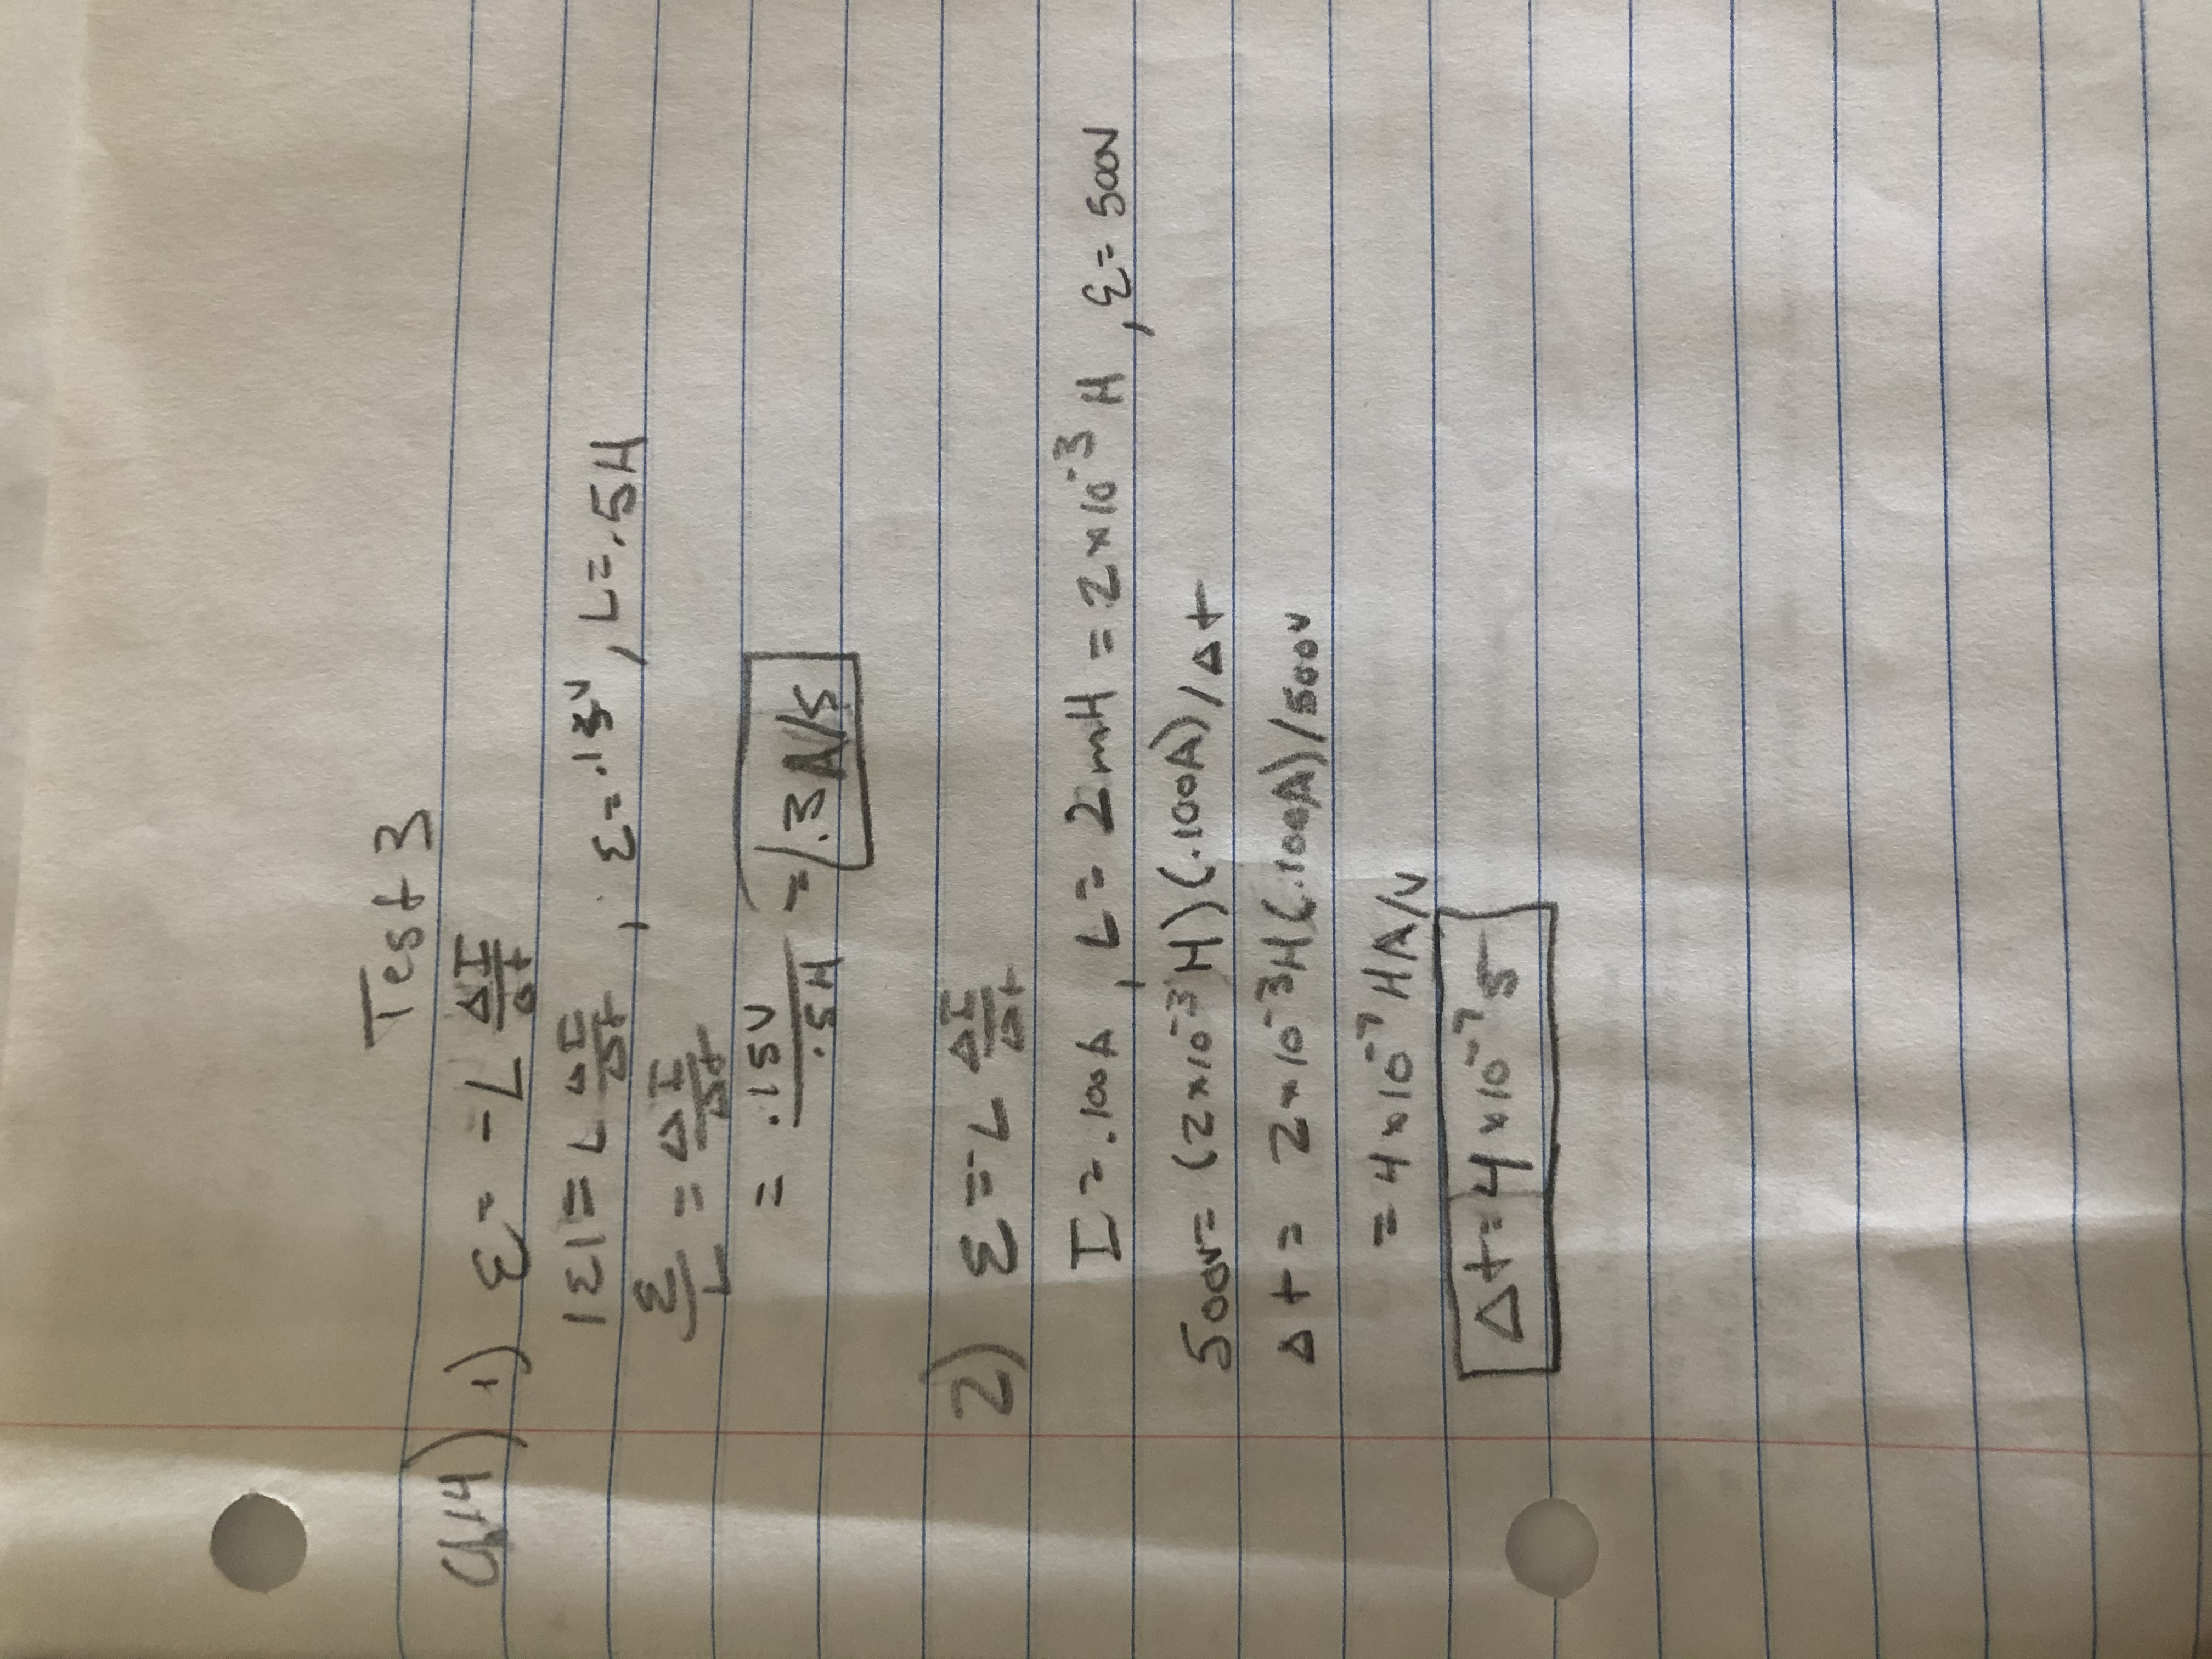 Test 3
Ch 14) 1) ε = -L ΔI/Δt
|ε| = L ΔI/Δt , ε = .15V , L = .5H
ε/L = ΔI/Δt
= .15V/.5H = .3A/s
2) ε = -L ΔI/Δt
I = .100A , L = 2mH = 2×10⁻³ H , ε = 500V
500V = (2×10⁻³ H)(.100A)/Δt
Δt = 2×10⁻³H(.100A)/500V
= 4×10⁻⁷ HA/V
Δt = 4×10⁻⁷ s